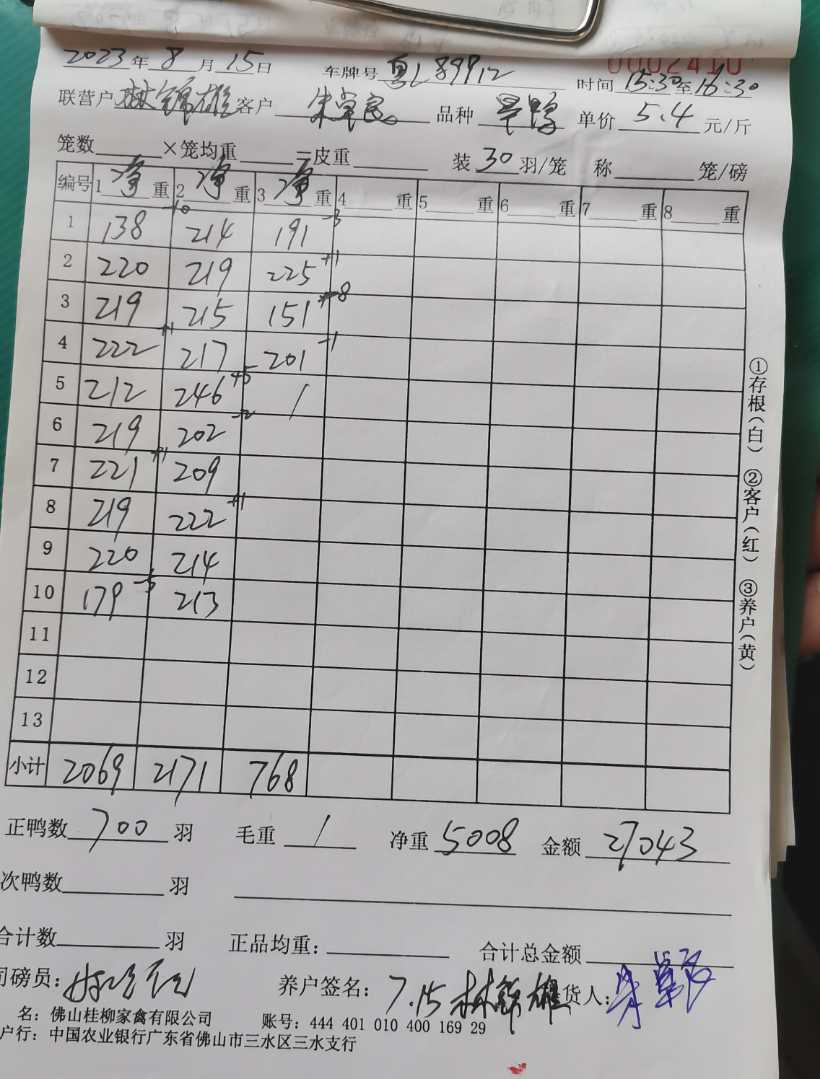 0002410
2023年8月15日 车牌号 粤L89912 时间 15:30至16:30
联营户 林锦雄 客户 品种 旱鸭 单价 5.4 元/斤
笼数 ×笼均重 =皮重 装 30 羽/笼 称 笼/磅
编号 1 净 重 2 净 重 3 净 重 4 重 5 重 6 重 7 重 8 重
1 138 214 191 -3
2 220 219 225 +1
3 219 215 151 -8
4 222 +1 217 201 -1
5 212 246 +5 /
6 219 202 -2
7 221 +1 209
8 219 222 +1
9 220 214
10 179 213
11
12
13
小计 2069 2171 768
正鸭数 700 羽 毛重 / 净重 5008 金额 27043
次鸭数 羽
合计数 羽 正品均重: 合计总金额
司磅员: 养户签名: 7.15 林锦雄 货人:
名: 佛山桂柳家禽有限公司 账号: 444 401 010 400 169 29
户行: 中国农业银行广东省佛山市三水区三水支行
①存根(白) ②客户(红) ③养户(黄)